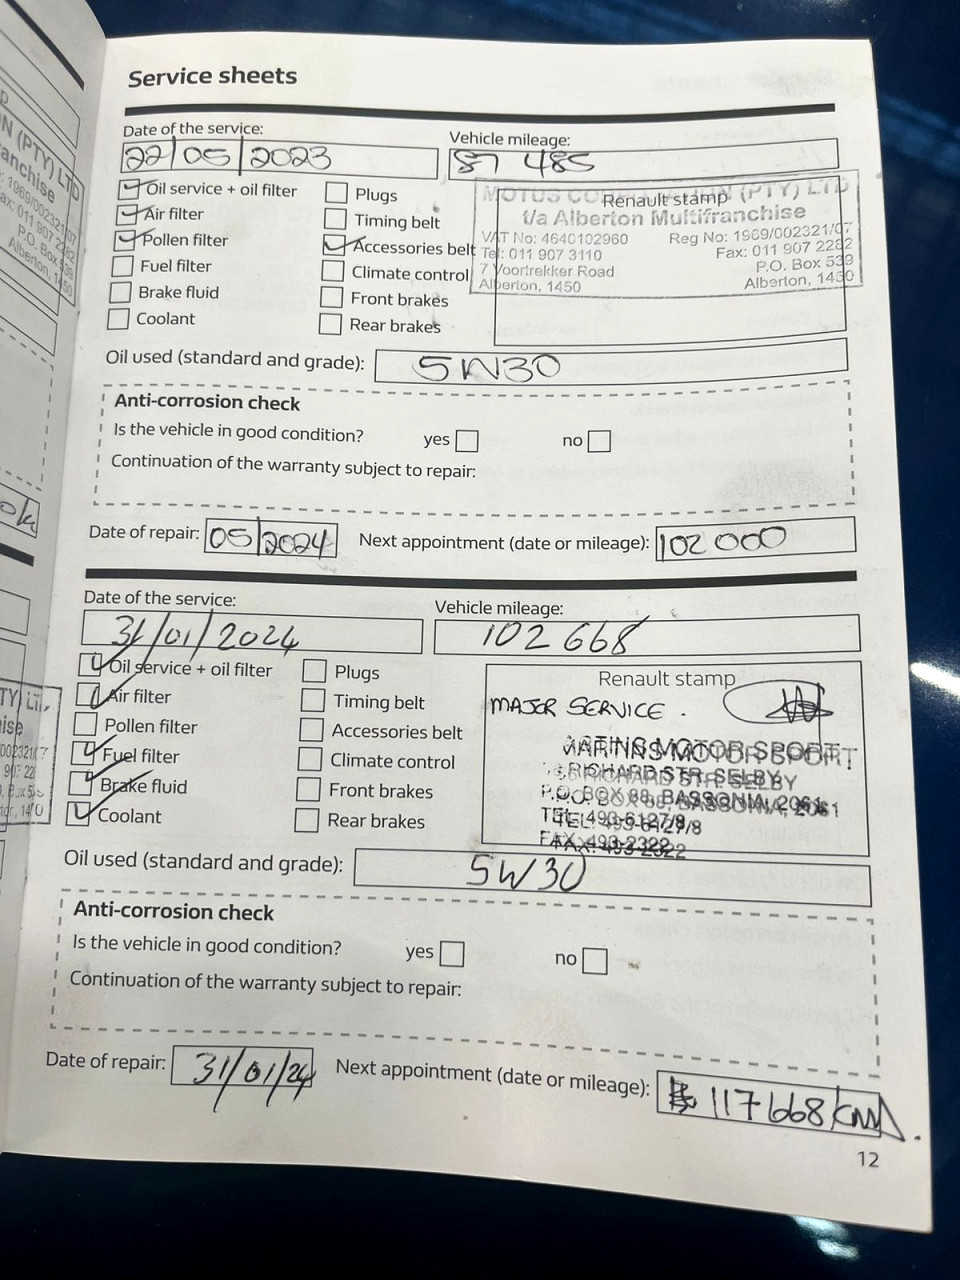 Service sheets
Date of the service:
22/05/2023
Vehicle mileage:
87 485
Oil service + oil filter
Air filter
Pollen filter
Fuel filter
Brake fluid
Coolant
Plugs
Timing belt
Accessories belt
Climate control
Front brakes
Rear brakes
Renault stamp
MOTUS CORPORATION (PTY) LTD
t/a Alberton Multifranchise
VAT No: 4640102960 Reg No: 1969/002321/07
Tel: 011 907 3110 Fax: 011 907 2282
7 Voortrekker Road P.O. Box 539
Alberton, 1450 Alberton, 1450
Oil used (standard and grade):
5W30
Anti-corrosion check
Is the vehicle in good condition? yes no
Continuation of the warranty subject to repair:
Date of repair: 05/2024 Next appointment (date or mileage): 102 000
Date of the service:
31/01/2024
Vehicle mileage:
102 668
Oil service + oil filter
Air filter
Pollen filter
Fuel filter
Brake fluid
Coolant
Plugs
Timing belt
Accessories belt
Climate control
Front brakes
Rear brakes
Renault stamp
MAJOR SERVICE.
MOTOR SPORT
RICHARD STR. SELBY
P.O. BOX 88, BASSONIA, 2061
TEL: 493-6127/8
FAX: 493-2322
Oil used (standard and grade):
5W30
Anti-corrosion check
Is the vehicle in good condition? yes no
Continuation of the warranty subject to repair:
Date of repair: 31/01/24 Next appointment (date or mileage): 117668 km
12